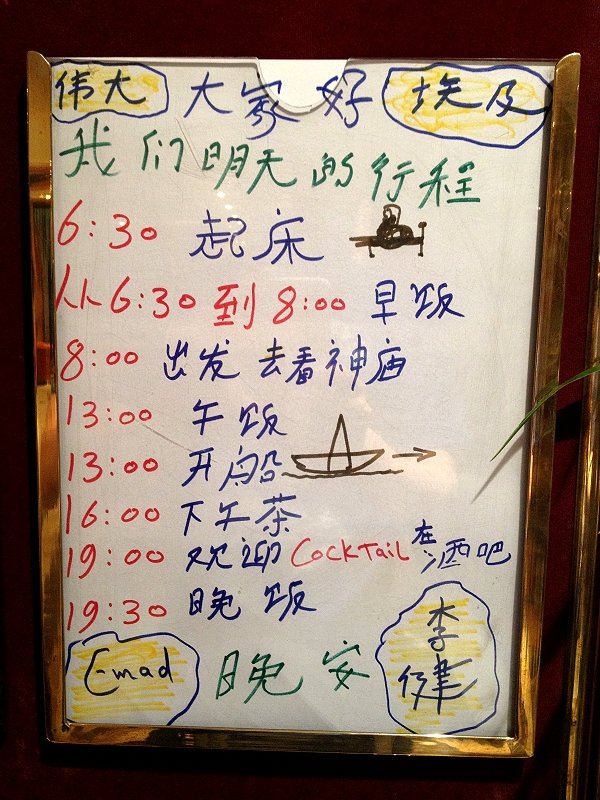 伟大 大家好 埃及
我们明天的行程
6:30 起床
从6:30到8:00 早饭
8:00 出发 去看神庙
13:00 午饭
13:00 开船
16:00 下午茶
19:00 欢迎 COCKTAIL 在酒吧
19:30 晚饭
Emad 晚安 李健